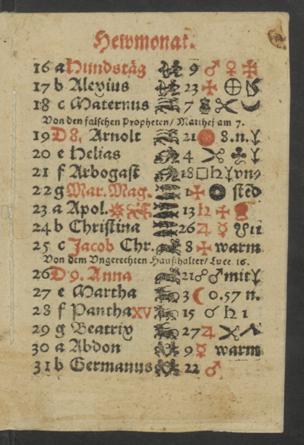 Hewmonat.
16 a Hundstäg 9 ♂ ♀
17 b Alexius 23
18 c Maternus 7
Von den falschen Propheten/ Matthei am 7.
19 D 8. Arnolt 21 8.n.
20 e Helias 4
21 f Arbogast 18 □ ♄
22 g Mar. Mag. 1
23 a Apol. 13 ♄
24 b Christina 26 ♃ ☿
25 c Jacob Chr. 8 warm
Von dem Vngerechten Haußhalter/ Luce 16.
26 D 9. Anna 21 ☍ ♂ mit
27 e Martha 3 ☾ 0.57 n.
28 f Pantha XV 15 ☌ ♄ 1
29 g Beatrix 27 ♃
30 a Abdon 9 ☿ warm
31 b Germanus 22 ♂